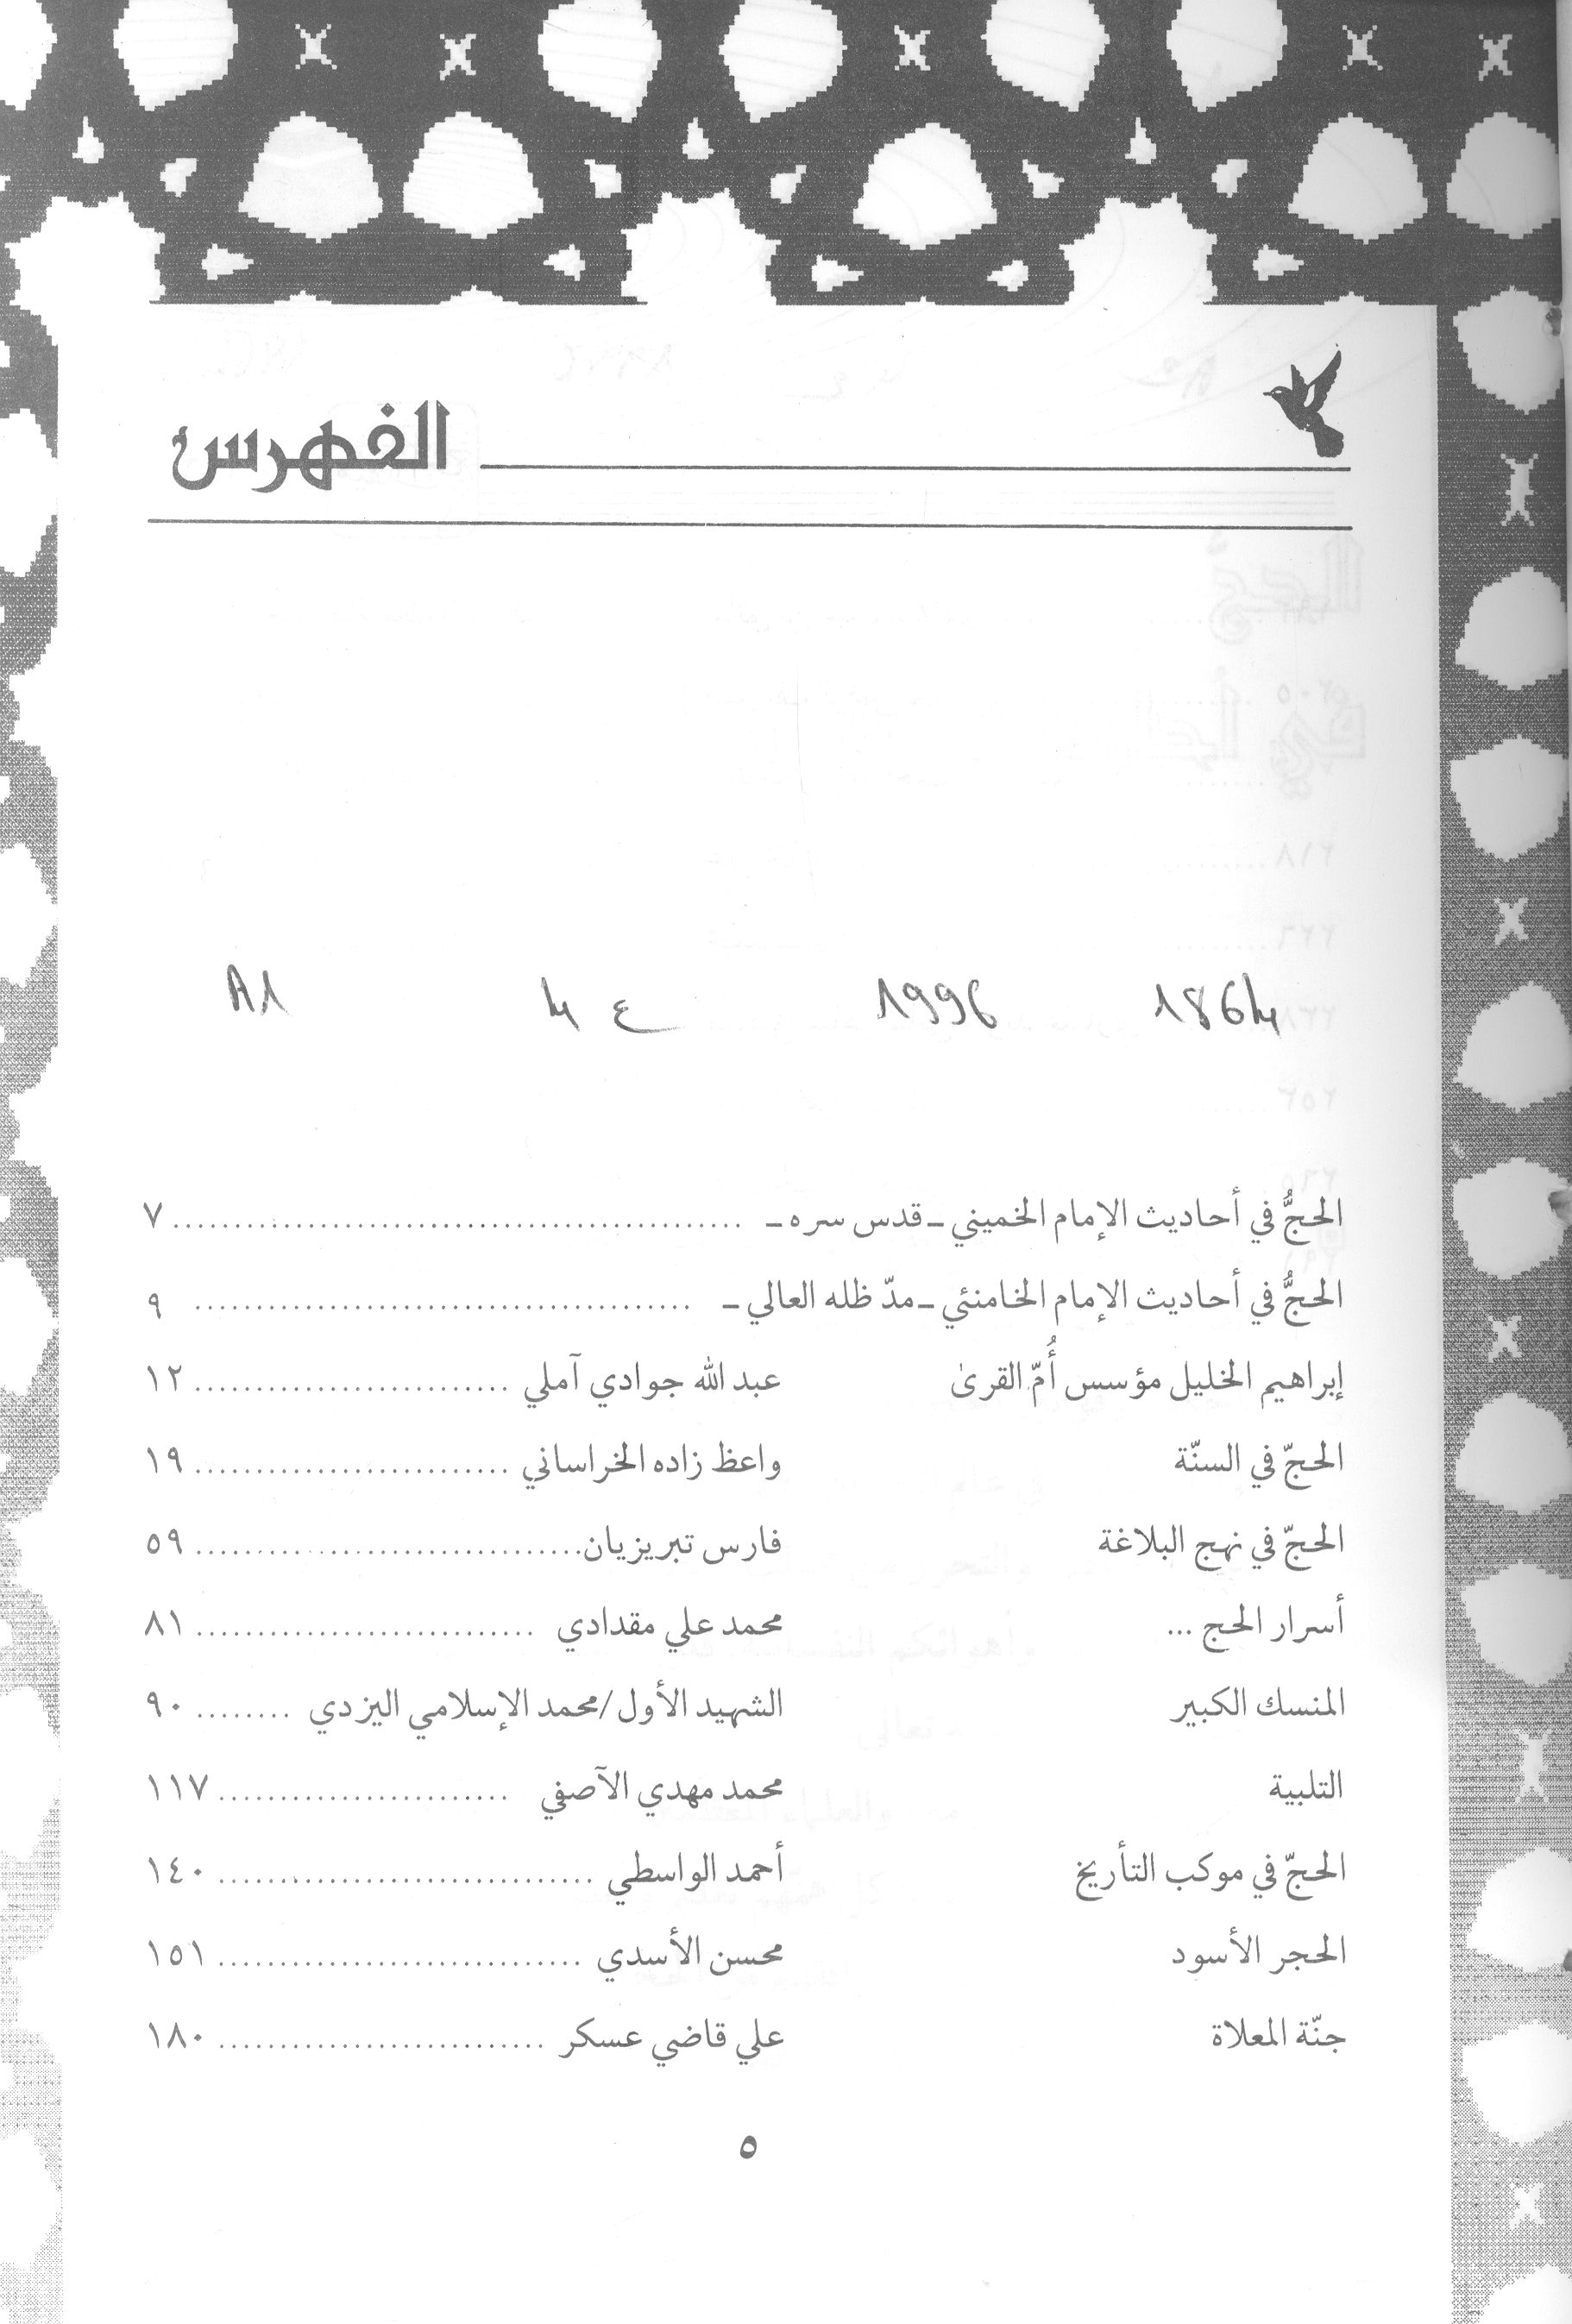 الفهرس
1864 1996 ع 4 A1
الحجُّ في أحاديث الإمام الخميني ـ قدس سره ـ ........................................ ٧
الحجُّ في أحاديث الإمام الخامنئي ـ مدّ ظله العالي ـ .................................. ٩
إبراهيم الخليل مؤسس أُمّ القرىٰ عبد الله جوادي آملي .......................... ١٢
الحجّ في السنّة واعظ زاده الخراساني .......................... ١٩
الحجّ في نهج البلاغة فارس تبريزيان................................ ٥٩
أسرار الحج ... محمد علي مقدادي ............................ ٨١
المنسك الكبير الشهيد الأول/محمد الإسلامي اليزدي ........ ٩٠
التلبية محمد مهدي الآصفي ........................ ١١٧
الحجّ في موكب التأريخ أحمد الواسطي .............................. ١٤٠
الحجر الأسود محسن الأسدي .............................. ١٥١
جنّة المعلاة علي قاضي عسكر .......................... ١٨٠
٥